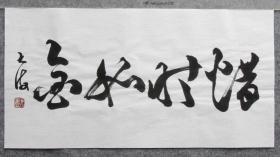 惜时如金